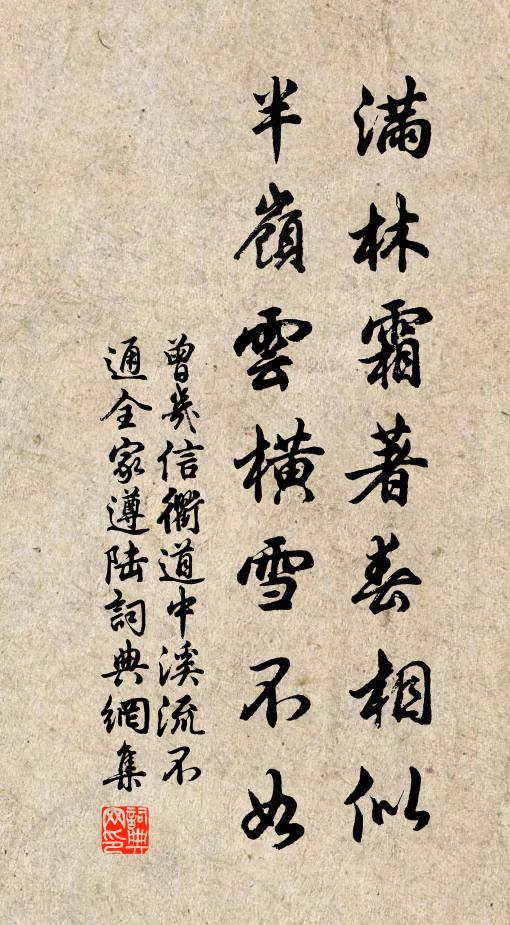 滿林霜著春相似
半嶺雲橫雪不如
曾幾信衢道中溪流不
通全家遵陸詞典網集
詞典
网印